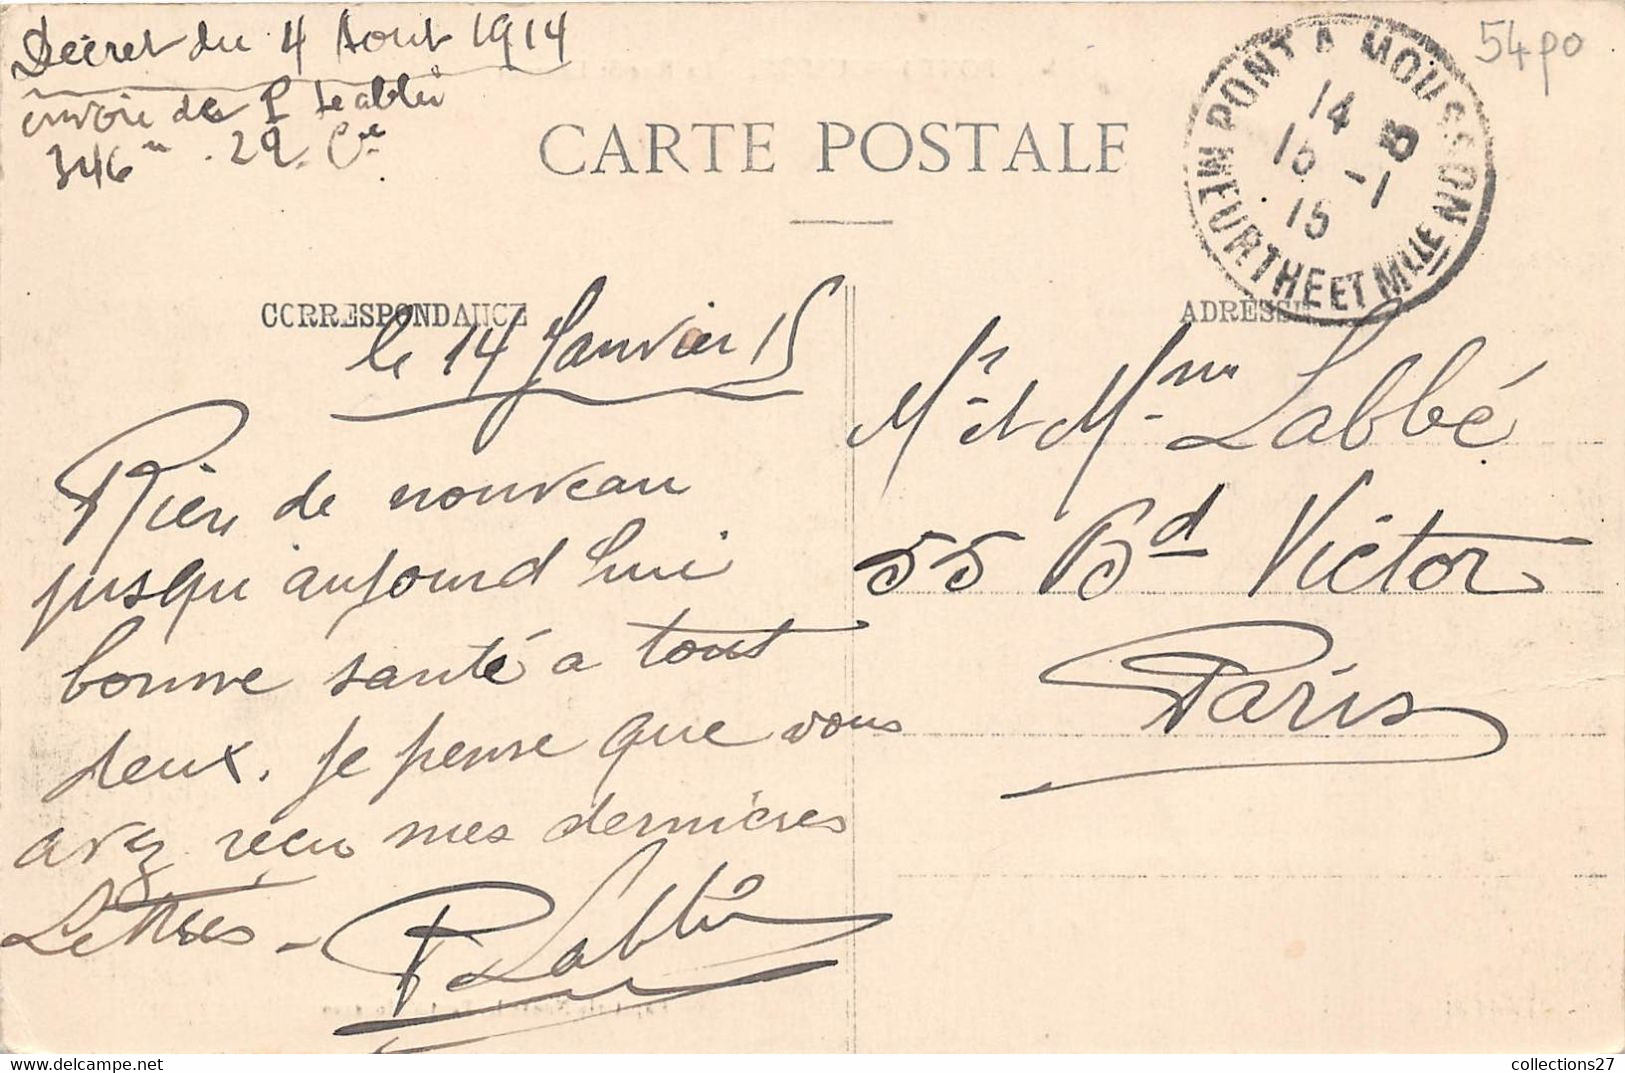 Décret du 4 Aout 1914
envoie de P Labbé
346me 29 Cie
54po
CARTE POSTALE
PONT A MOUSSON
14 8
15 -1
15
MEURTHE ET MLLE
CORRESPONDANCE
ADRESSE
le 14 Janvier 15
Rien de nouveau
jusqu'aujourd hui
bonne santé a tout
deux. Je pense que vous
avez reçu mes dernières
Lettres -
P Labbé
Mr et Mme Labbé
55 Bd Victor
Paris
collections27